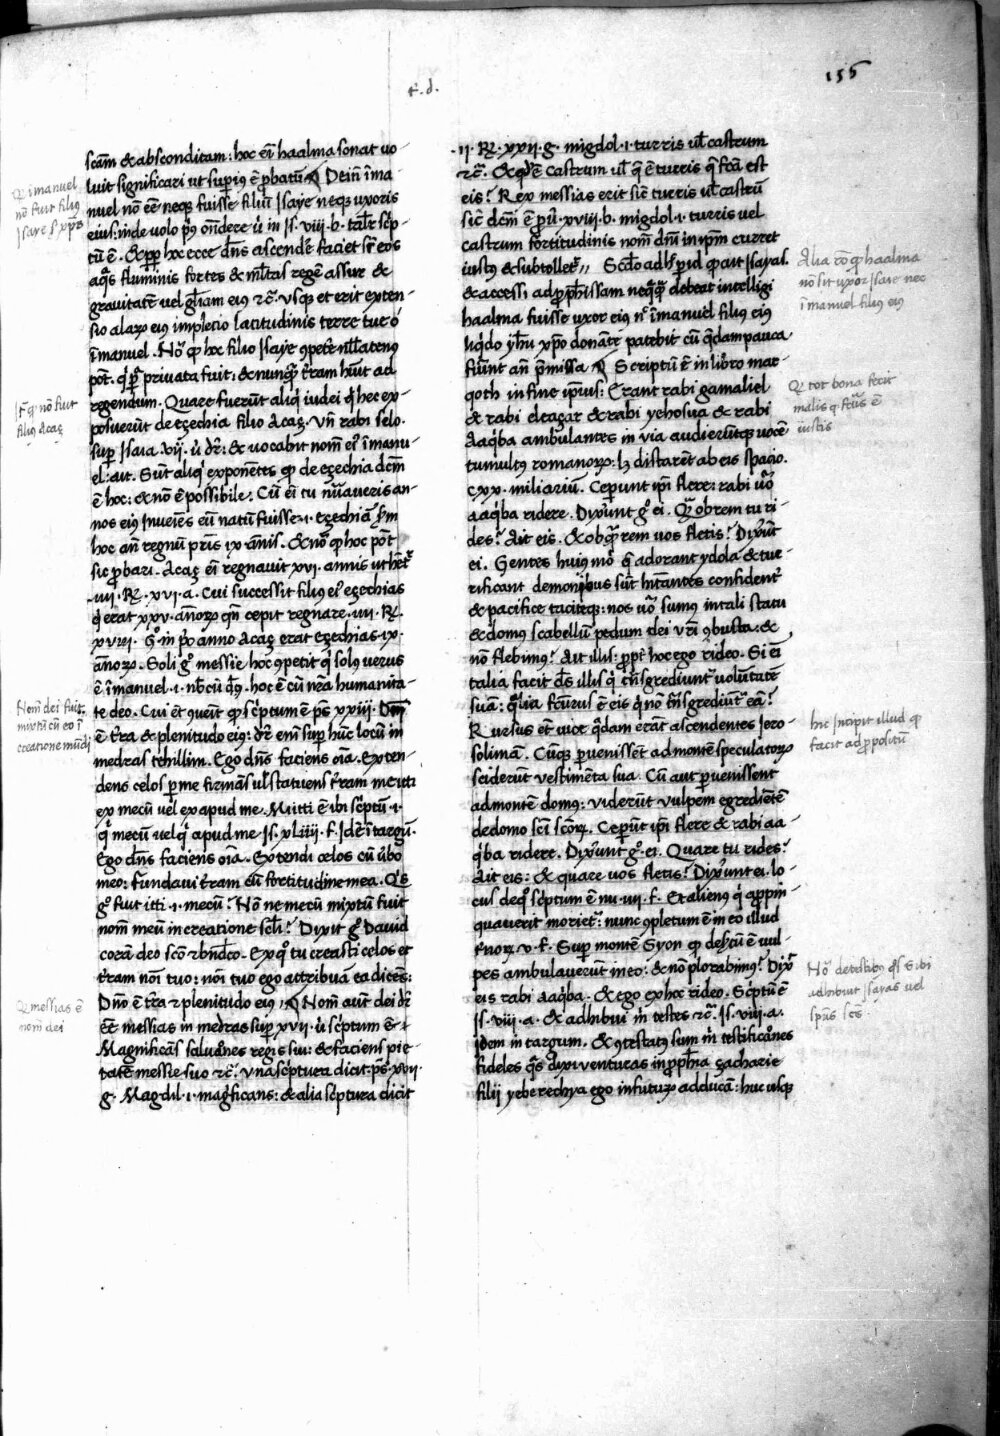 155
f. d.
scām & absconditam: hoc ēī haalma sonat uo-
luit significari ut supius ē pbatū Deīn īma-
nuel nō eē neq fuisse filiū Jsaye neq uxoris
eius: inde uolo pus ondere ù in Js. viii. b. talr scp-
tū ē. & pp hoc ecce dns ascendē faciet sr eos
aqs fluminis fortes & mltas regē assur &
gravitatē vel gliam eius rc. usq et erit exten-
sio alarq eius impletio latitudinis terre tue ó
īmanuel. Nō qp hoc filio Jsaye cpetē nllatenus
pōt. qr pr privata fuit: & nunq tram huit ad
regendum. Quare fuerūt aliq iudei qr hec ex-
posuerūt de ezechia filio Acaz. Vn rabi selo.
sup Jsaia. vii. ù dr: & uocabit nomē eius īmanu-
el: ait. Sūt aliq exponētes qp de ezechia dcm
ē hoc: & nō ē possibile. Cū eī tu nūaveris an-
nos eius inueīes eū natū fuisse .i. ezechiā
hoc añ regnū pris ix annis. & nō qp hoc pōt
sic pbari. Acaz eī regnavit xvi. annis ut het
iiii. R. xvi. a. Cui successit filius eius ezechias
q erat xxv. annorq qn cepit regnare. iiii. R.
xviii. g in po anno Acaz erat ezechias ix.
annorq. Soli g messie hoc cpetit q solus verus
ē īmanuel .i. nbcū ds. hoc ē cū nra humanita-
te deo. Cui et cuēit qp scptum ē ps xxiii. Dni
ē tra & plenitudo eius: dr enī sup hūc locū in
medras tehillim. Ego dns faciens oīa. Exten-
dens celos p me firmās ul statuens tram meitti
ex mecū vel ex apud me. Mitti ē ibi scptū .i.
q mecū uel q apud me Js. xliiii. f. Idē ī targū.
Ego dns faciens oīa. Extendi celos cū ubo
meo: fundavi tram cū fortitudine mea. Qs
g fuit itti .i. mecū? Nō ne mecū mixtū fuit
nom meū in creatione scli? Dixit g David
corā deo scō & bndcō. Ex q tu creasti celos et
tram noī tuo: noī tuo ego attribuā ea dicēs:
Dnō ē tra & plenitudo eius Nom aūt dei dr
eē messias in medras sup xvii. ù scptum ē
Magnificās saluones regis sui: & faciens pie-
tatē messie suo rc. una scptura dicit: ps. xvii.
g. Magdil .i. magnficans: & alia scptura dicit
ii. R. xxii. g. migdol .i. turris ul castrum
rc. & qd ē castrum ul q ē turris q fca est
eis? Rex messias erit sic turris ul castrū
sic dcm ē pu. xviii. b. migdol .i. turris vel
castrum fortitudinis nom dnī in ipm curret
iustus & subtolletr Scdo adhpid qp ait Jsayas.
& accessi ad pphissam neqq debeat intelligi
haalma fuisse uxor eius nec īmanuel filius eius
liqdo yhu xpo donāte patebit cū qdam pauca
fiunt añ pmissa Scriptū ē in libro mac-
qoth in fine ipius: Erant rabi gamaliel
& rabi eleazar & rabi yehosua & rabi
Aaqba ambulantes in via audieruntq uocē
tumultus romanorq: lz distarēt ab eis spacio.
cxx. miliariū. Ceperunt ipi flere: rabi uo
aaqba ridere. Dixunt g ei. Qobrem tu ri-
des? Ait eis. & obqrem uos fletis? Dixūt
ei. Gentes huius mō q adorant ydola & tur-
rificant demonibus sūt hitantes confident
& pacifice taciteq: nos uo sumus in tali statu
& domus scabellū pedum dei nri cbusta: &
nō flebimus? Ait illis: ppt hoc ego rideo. Si eī
talia facit ds illis q tnsgrediuntur uoluntatē
suā: qlia fcurus ē eis q nō tnsgrediunt eā?
Rursus et uice qdam erāt ascendentes jero-
solimā. Cūq puenissēt ad mōtē speculatorq
sciderūt vestimēta sua. Cū aut puenissent
ad montē domus: viderūt vulpem egrediētē
de domo scī scōrq. Ceperūt ipi flere & rabi aa-
qba ridere. Dixunt g ei. Quare tu rides?
Ait eis: & quare uos fletis? Dixunt ei. lo-
cus de q scptum ē nu. iii. f. Et alienus q appin-
quaverit morietr: nunc cpletum ē in eo illud
tnorq. v. f. Sup montē Syon qp deftcū ē uul-
pes ambulaverūt in eo: & nō plorabimus? Dix
eis rabi aaqba. & ego ex hoc rideo. Scptū ē
Js. viii. a. & adhibui m testes rc. Js. viii. a.
Idem in targum. & ctestatus sum m testificaones
fideles qs duxi venturas in pphia zacharie
filii yeberechya ego in futurq adducā: huc usq
Q imanuel
nō fuit filius
Jsaye s xps
Jt q nō fuit
filius Acaz
Nom dei fuit
mixtū cū eo ī
creatione mūdi
Q messias ē
nom dei
Alia rō qp haalma
nō sit uxor Jsaie nec
īmanuel filius eius
Q tot bona fecit
malis q fcūs ē
iustis
hic incipit illud qp
facit ad ppositū
Nō de testibus qs sibi
adhibuit Jsayas vel
spūs scūs.